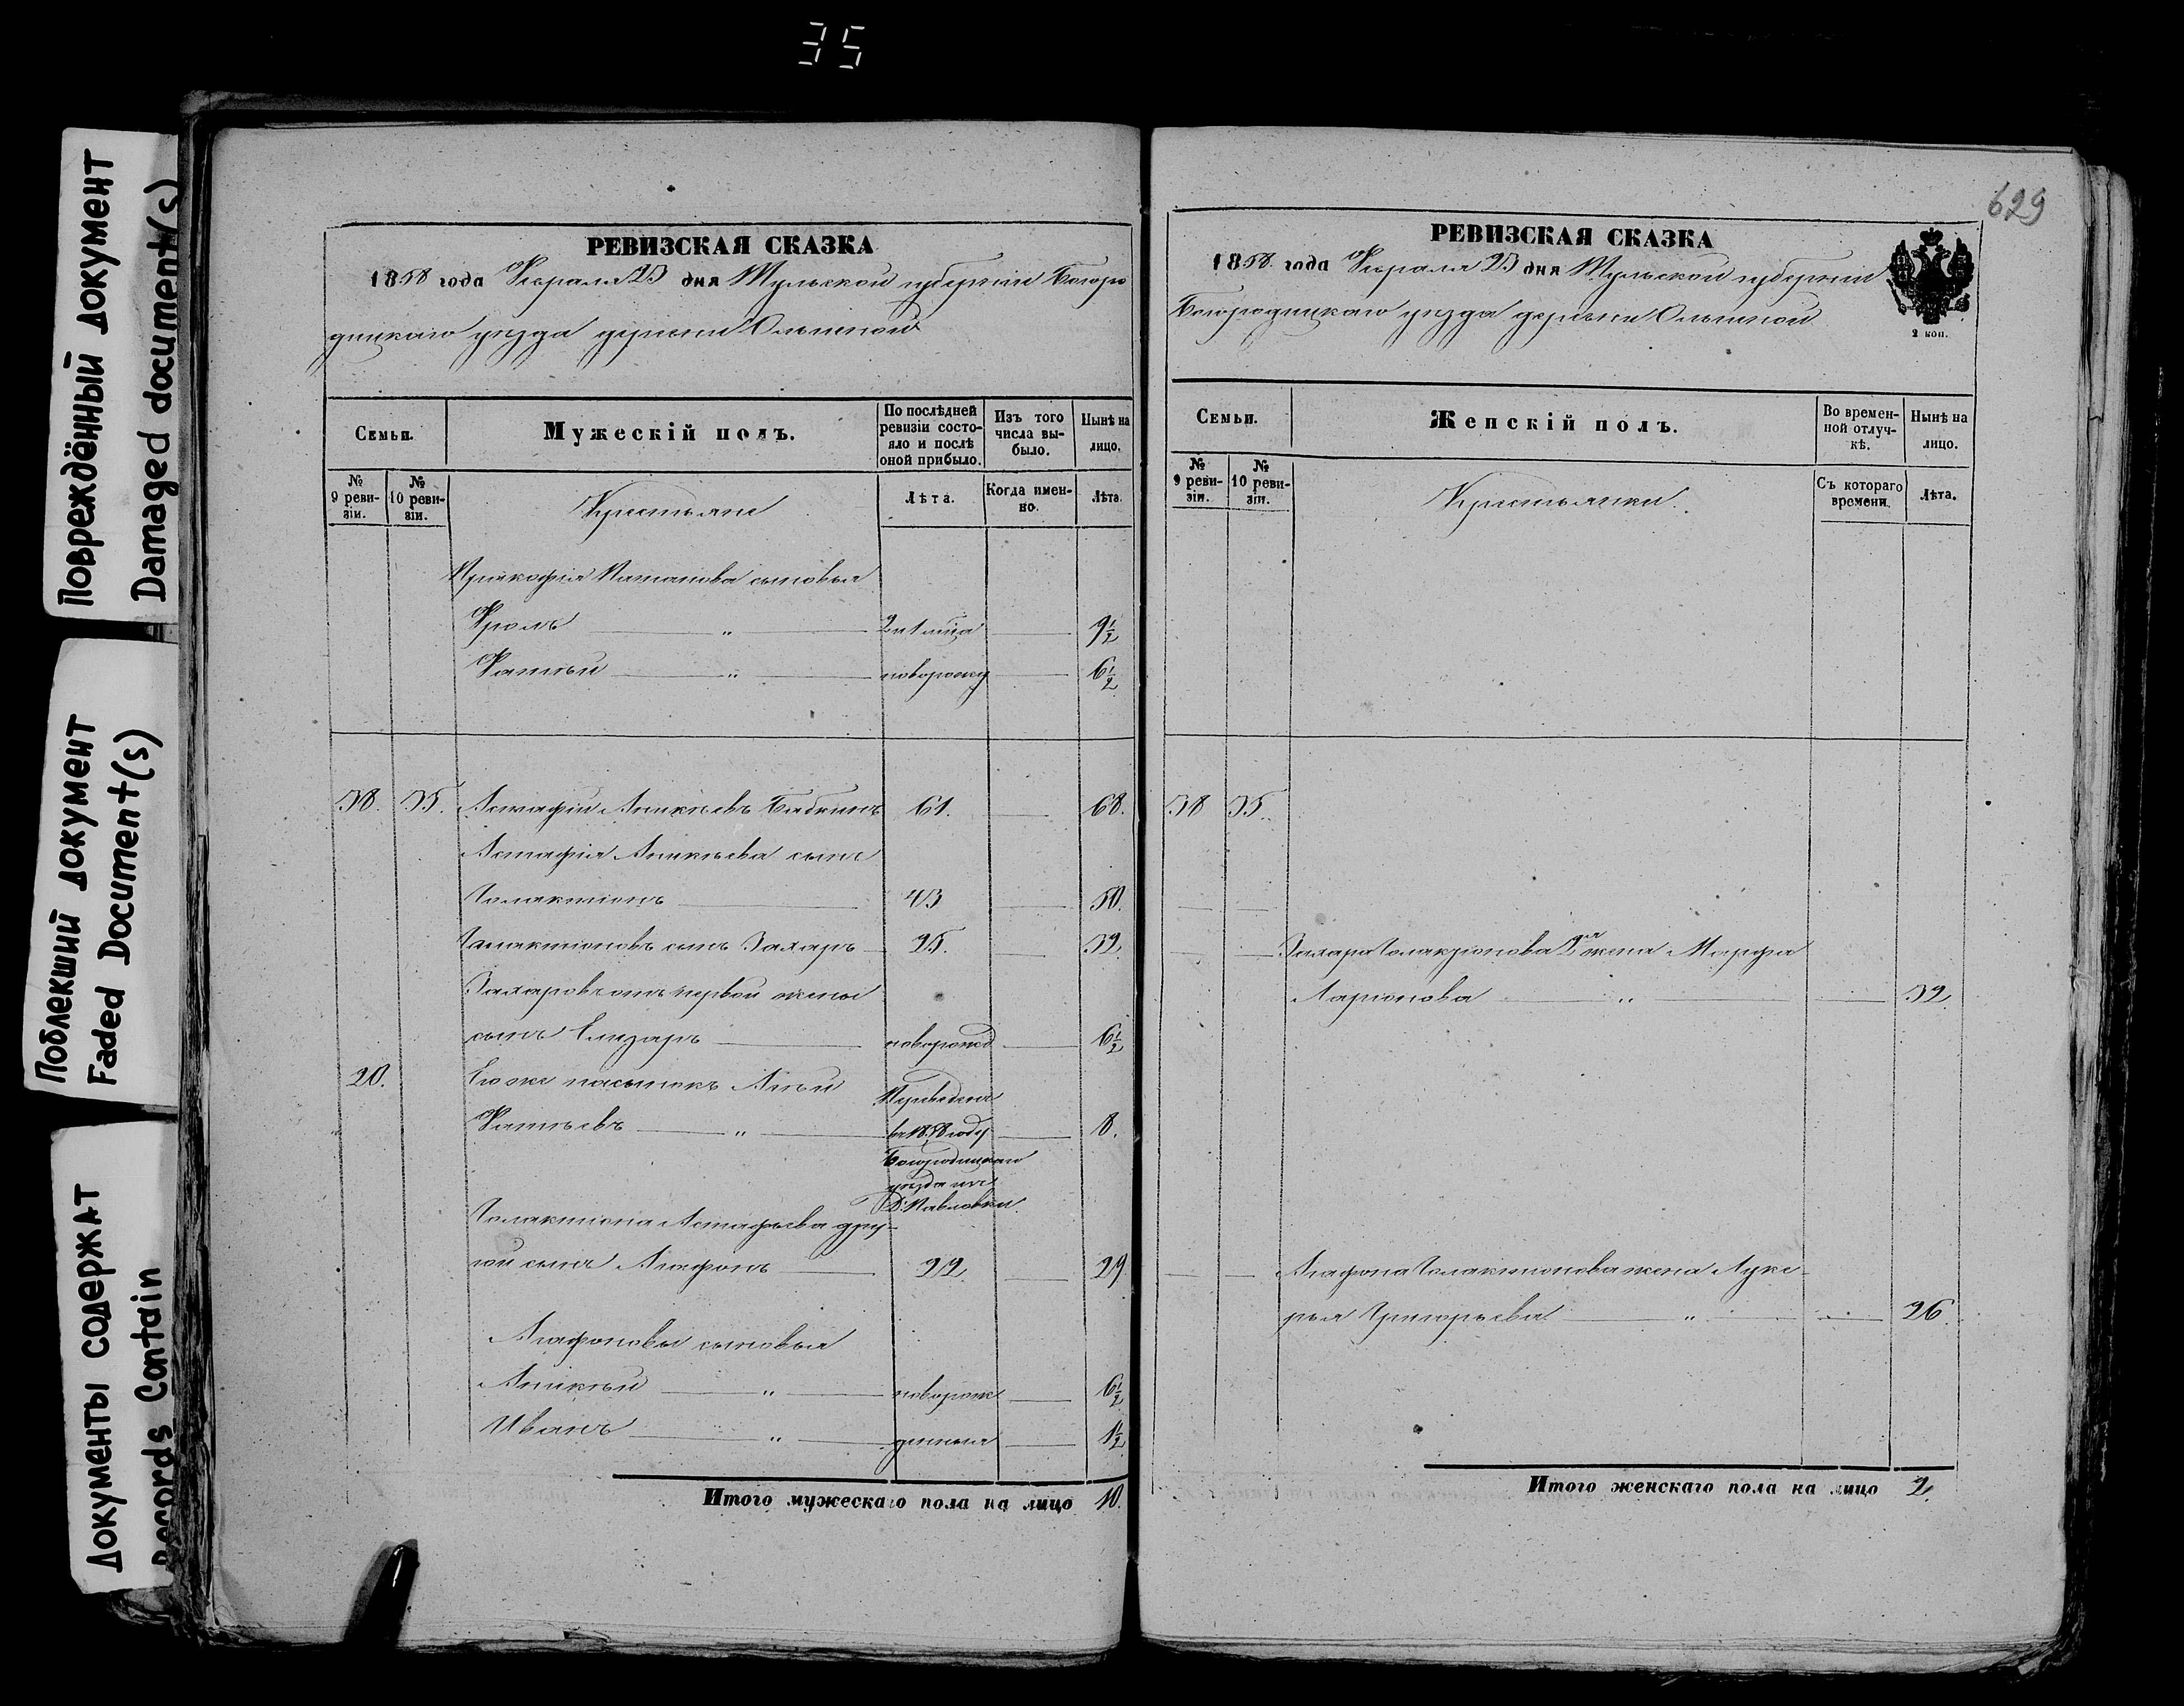 35
Повреждённый документ
Damaged document(s)
Поблекший документ
Faded Document(s)
Документы содержат
Records Contain
629
РЕВИЗСКАЯ СКАЗКА
1858 года Февраля 23 дня Тульской губерніи Богоро
дицкаго уѣзда деревни Ольшной
Семьи.
Мужескій полъ.
По послѣдней ревизіи состо-
яло и послѣ
оной прибыло.
Изъ того
числа вы-
было.
Нынѣ на
лицо.
№
9 реви-
зіи.
№
10 реви-
зіи.
Крестьяне
Лѣта.
Когда имен-
но.
Лѣта.
Прокофія Потапова сыновья
Фролъ " 9½
Фатѣй " новорожд 6½
38. 35. Астафій Аникѣевъ Бабкинъ 61. 68.
Астафія Аникѣева сынъ
Голактіонъ 43 50.
Галактіоновъ сынъ Захаръ 25. 32
Захаровъ отъ первой жены
сынъ Елизаръ новорожд 6½
20. Его же пасынокъ Анѣй
Фатѣевъ " 8.
Переведенъ
въ 1858 году
Богородицкаго
уѣзда изъ
д. Павловки.
Голактіона Астафьева дру-
гой сынъ Агафонъ 22 29
Агафоновы сыновья
Аникѣй " новорож 6½
Иванъ " 1½
Итого мужескаго пола на лицо 10.
РЕВИЗСКАЯ СКАЗКА
1858 года Февраля 23 дня Тульской губерніи
Богородицкаго уѣзда деревни Ольшной
2 коп.
Семьи.
Женскій полъ.
Во времен-
ной отлуч-
кѣ.
Нынѣ на
лицо.
№
9 реви-
зіи.
№
10 реви-
зіи.
Крестьянки.
Съ котораго
времени.
Лѣта.
38 35.
Захара Голактіонова 2я жена Марфа
Ларіонова " 32
Агафона Голактіонова жена Луке-
рья Григорьева " 26.
Итого женскаго пола на лицо 2.